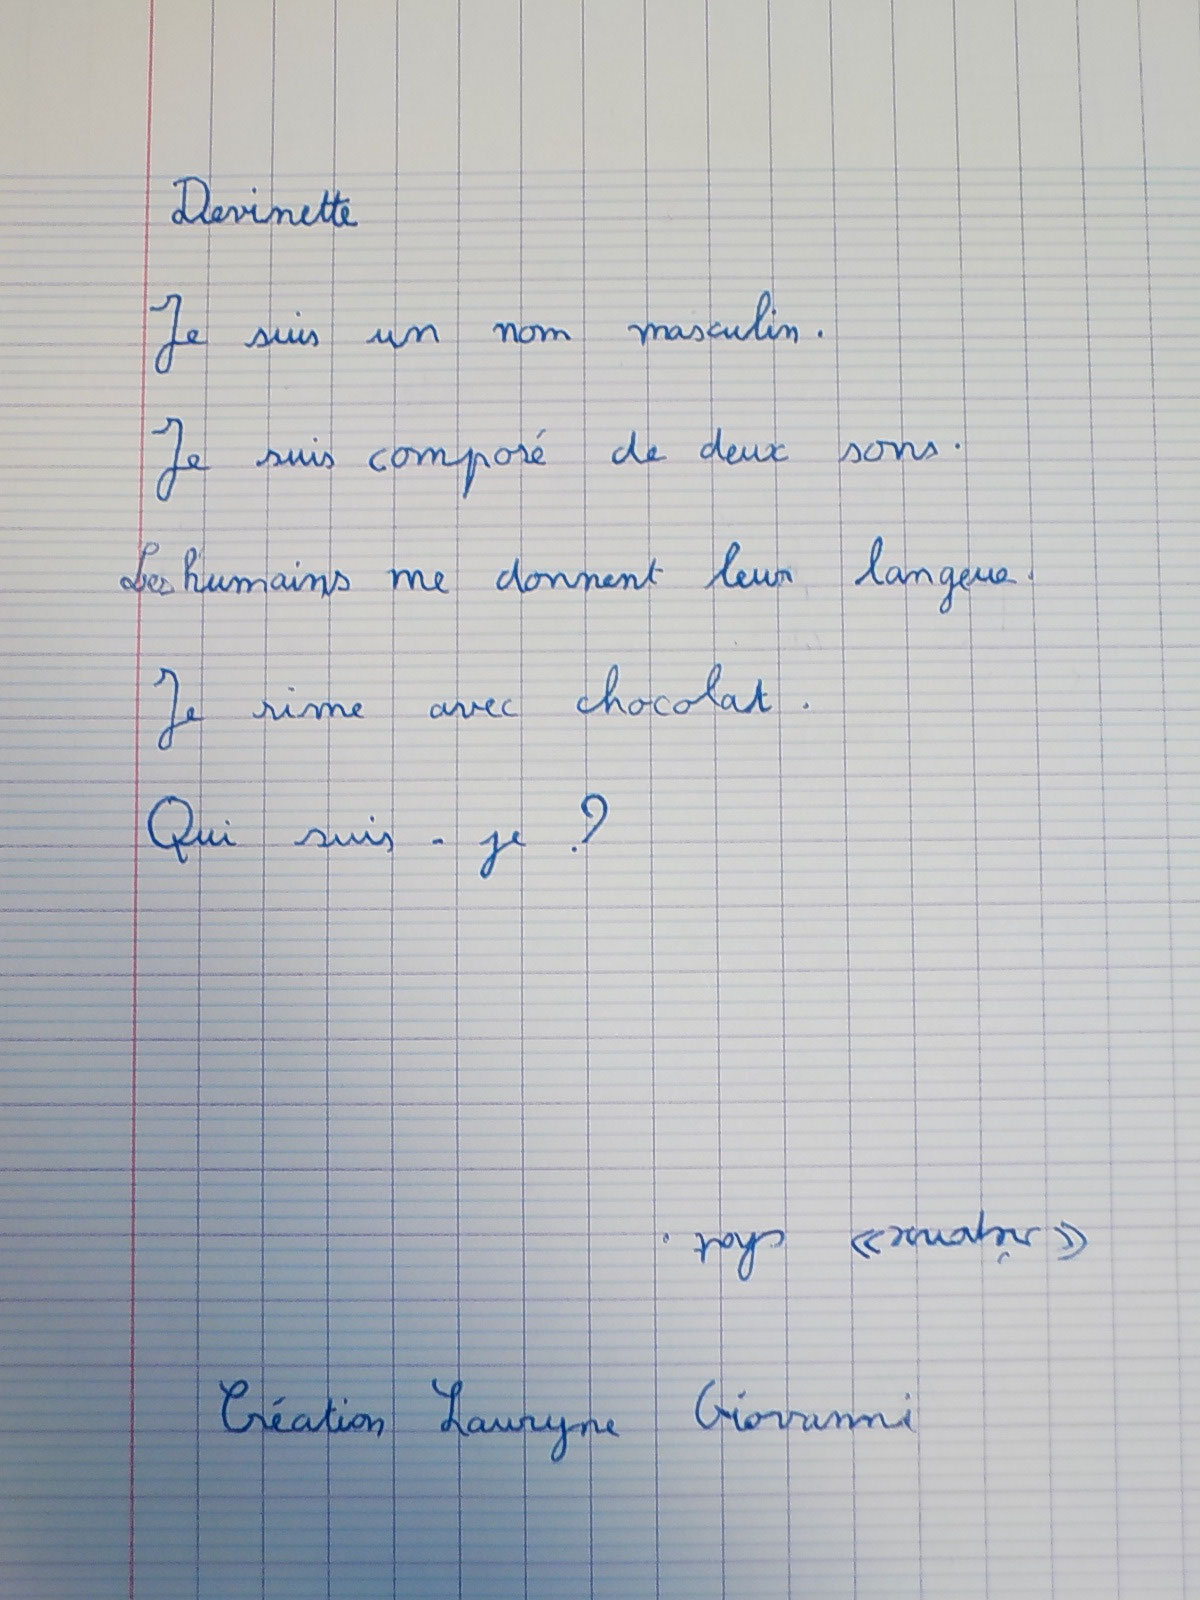 Devinette
Je suis un nom masculin.
Je suis composé de deux sons.
Les humains me donnent leur langeue.
Je rime avec chocolat.
Qui suis-je ?
«réponse» chat.
Création Lauryne Giovanni